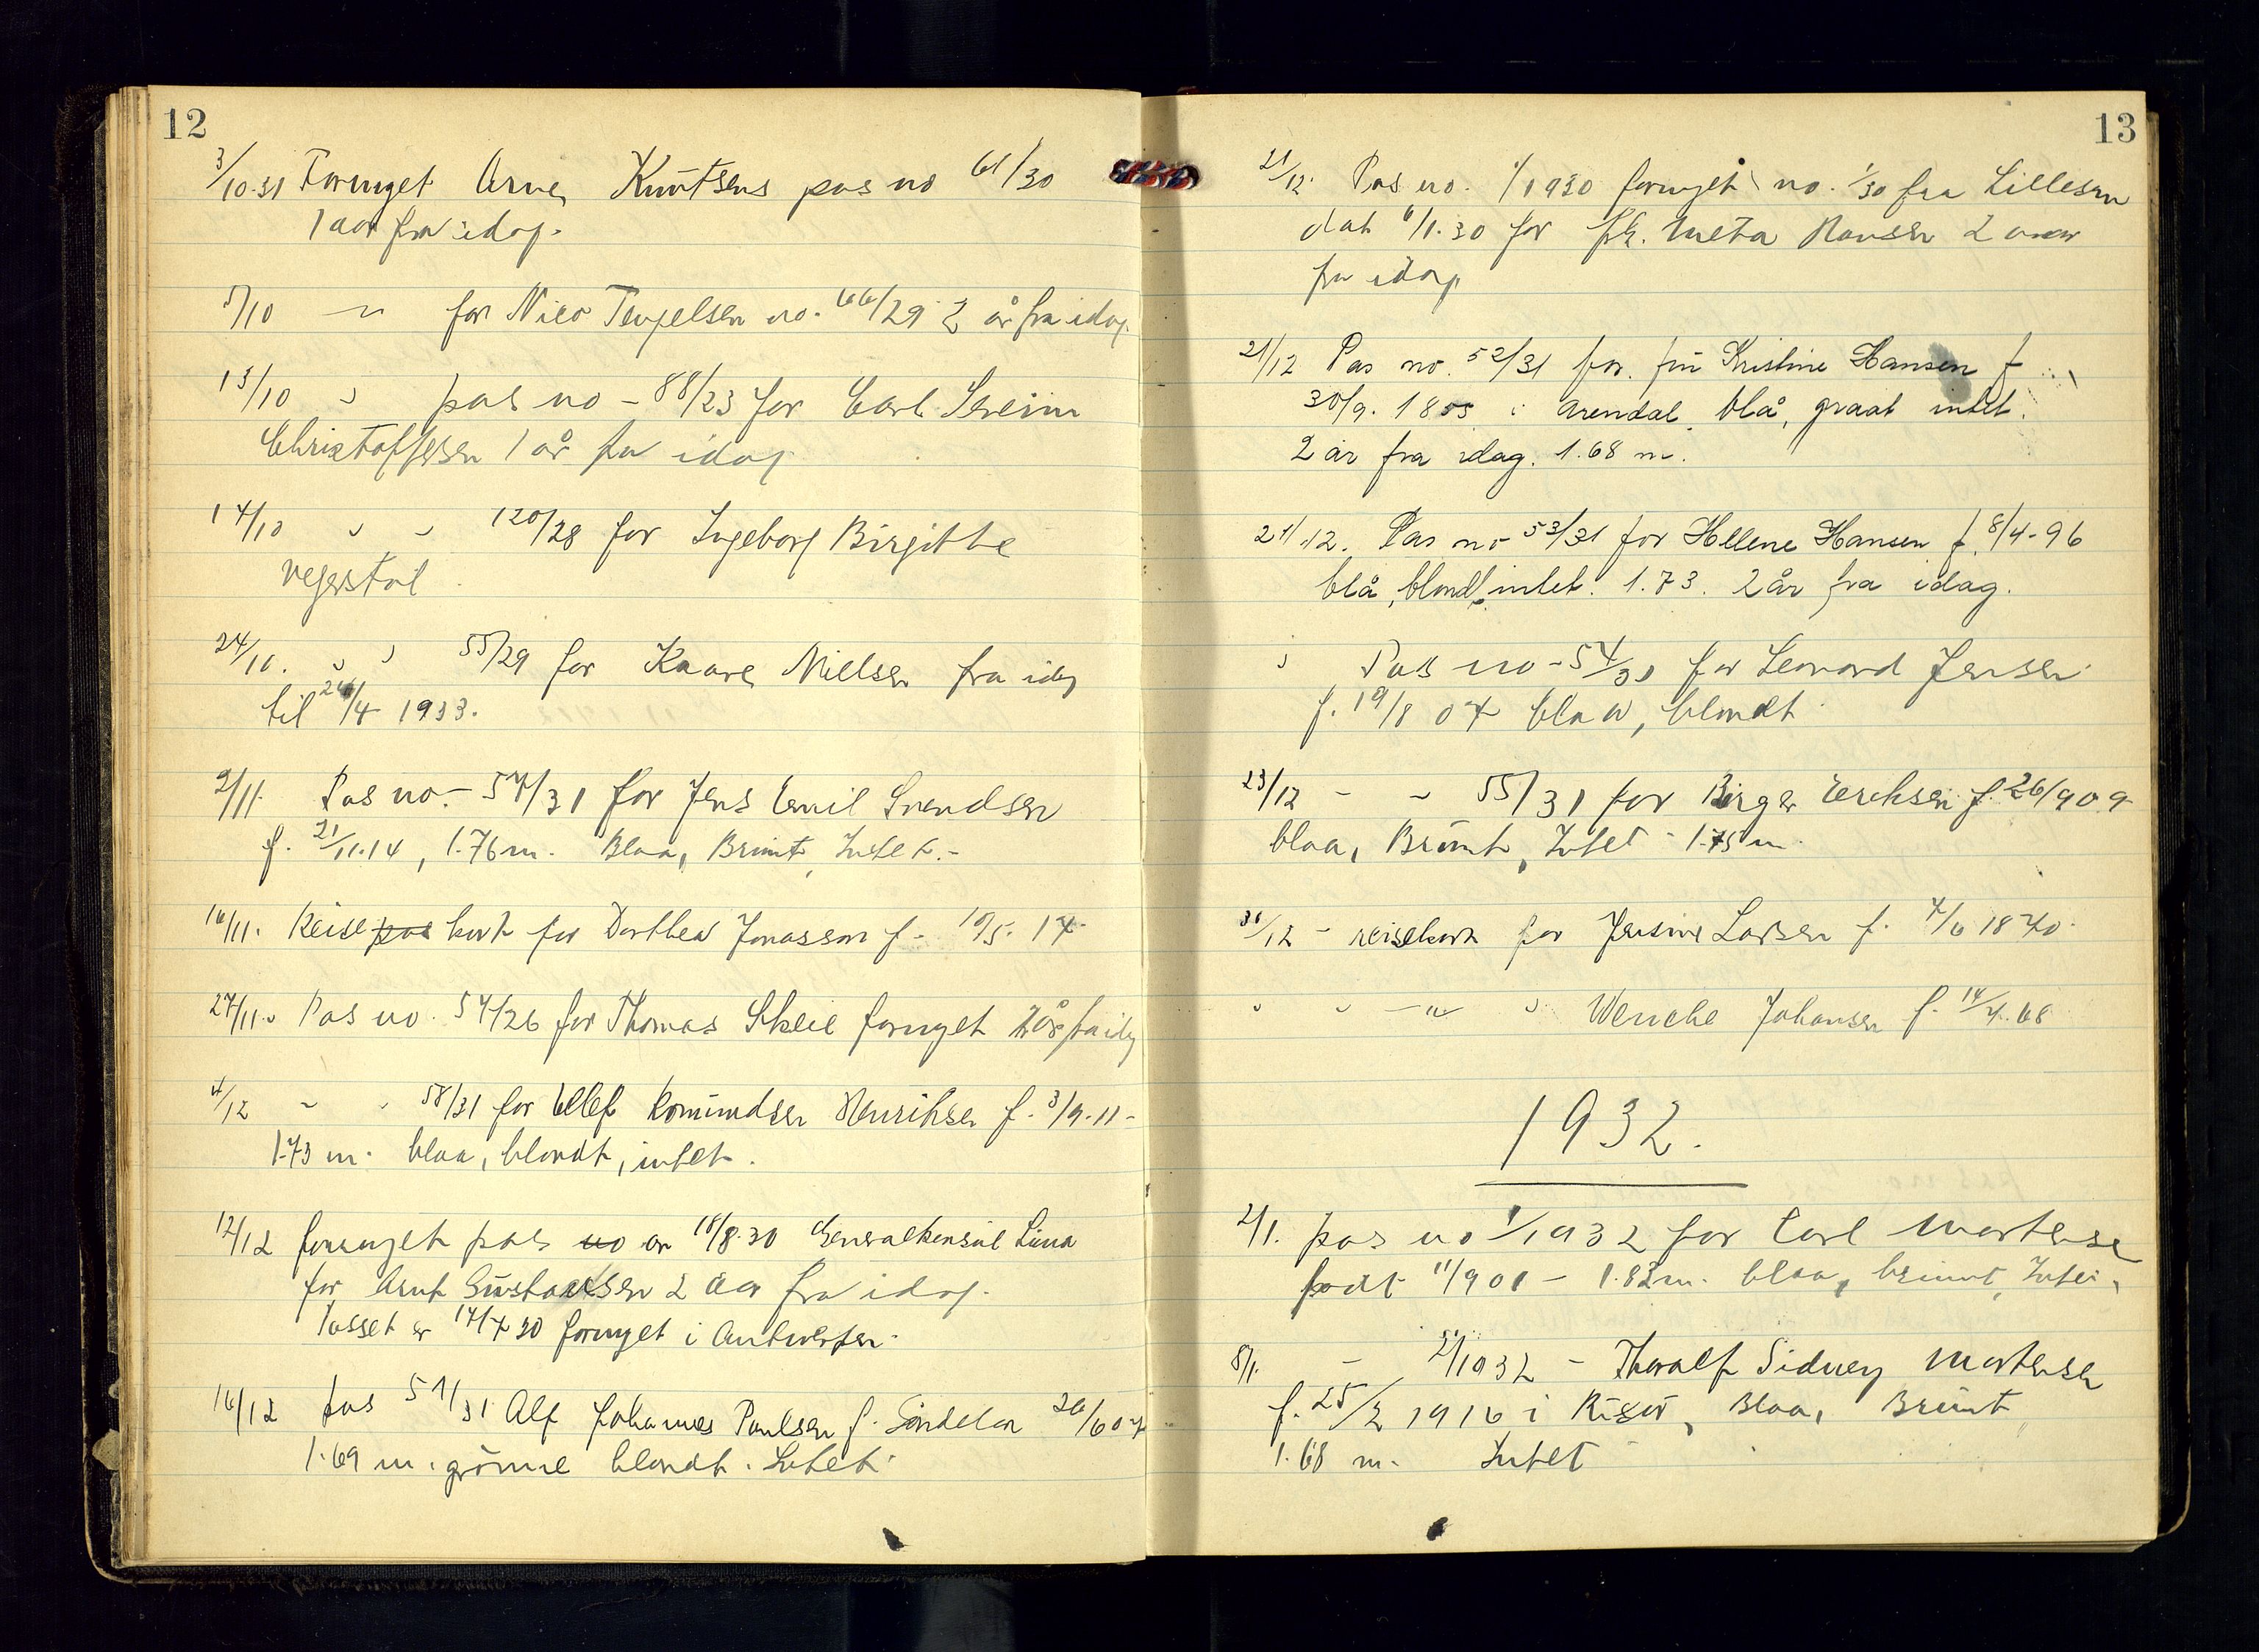 12
3/10.31 Fornyet Arne Knutsens pas no 61/30
1 aar fra idag.
5/10 — " — for Nico Tengelsen no. 66/29 2 år fra idag
13/10 " pas no - 88/23 for Carl Severin
Christoffersen 1 år fra idag
14/10 " " 120/28 for Ingeborg Birgitte
Vegerstøl
24/10. " " 55/29 for Kaare Nielsen fra idag
til 26/4 1933.
9/11. Pas no. - 57/31 for Jens Emil Svendsen
f. 21/11.14, 1.76 m. Blaa, Brunt, Intet. -
16/11. Reisepas kort for Dorthea Jonassen f. 10/5. 14
27/11. Pas no. 54/26 for Thomas Skeie fornyet 2 år fra idag
4/12 " " 58/31 for Ellef Romundsen Henriksen f. 3/9.11 -
1.73 m. blaa, blondt, intet.
12/12 fornyet pas no av 18/8.30 Generalkonsul Lima
for Arnt Gustavsen 2 aar fra idag.
Passet er 17/7 30 fornyet i Antwerpen.
16/12 pas 51/31 Alf Johannes Paulsen f. Søndelen 26/6 07
1.69 m. grønne blondt. Intet.
13
21/12. Pas no. 1/1930 fornyet no. 1/30 fra Lillesan
dat 6/1.30 for frk. Meta Hansen 2 aar
fra idag
21/12 Pas no. 52/31 for fru Kristine Hansen f
30/9. 1855 i Arendal, blå, graat intet.
2 år fra idag. 1.68 m.
21/12. Pas no 53/31 for Hellene Hansen f. 8/4-96
blå, blondt, intet. 1.73. 2 år fra idag.
" Pas no - 54/31 for Leonard Jensen
f. 19/8 07 blaa, blondt
23/12 - - 55/31 for Birger Eriksen f. 26/9 09
blaa, Brunt, Intet - 1.75 m.
30/12 - reisekort for Jensine Larsen f. 4/6 1870.
" " — " — " Wenche Johansen f. 14/4.68
1932.
2/1. pas no 1/1932 for Carl Mortensen
født 11/9 01 - 1.82 m. blaa, brunt, Intet,
8/1. - 2/1932 - Thoralf Sidney Mortensen
f. 25/2 1916 i Risør, Blaa, Brunt,
1.68 m. Intet